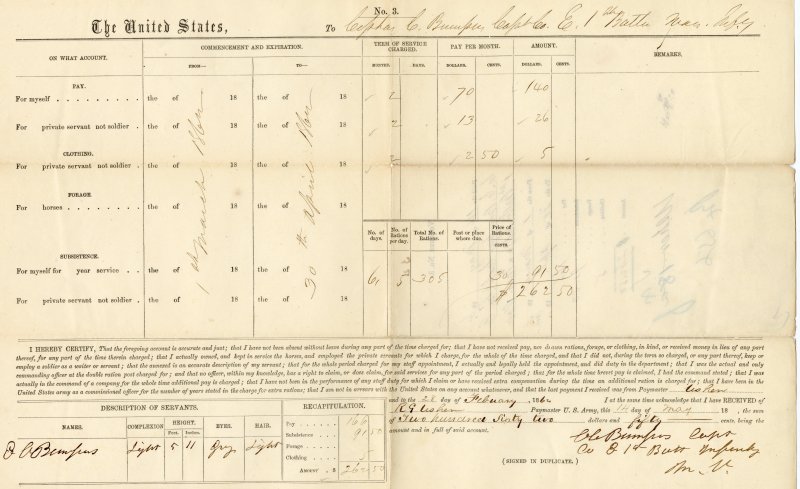 No. 3.
The United States,
To Cephas C. Bumpus Capt Co. E. 1st Battn Mass. Infy
ON WHAT ACCOUNT.
COMMENCEMENT AND EXPIRATION.
TERM OF SERVICE CHARGED.
PAY PER MONTH.
AMOUNT.
REMARKS.
FROM— TO— MONTHS. DAYS. DOLLARS. CENTS. DOLLARS. CENTS.
1st March 1862
30th April 1862
PAY.
For myself . . . . . . . . . the of 18 the of 18 2 70 140
For private servant not soldier . the of 18 the of 18 2 13 26
CLOTHING.
For private servant not soldier . the of 18 the of 18 2 50 5
FORAGE.
For horses . . . . . . . . the of 18 the of 18
No. of days. No. of Rations per day. Total No. of Rations. Post or place where due. Price of Rations. CENTS.
SUBSISTENCE.
For myself for year service . . the of 18 the of 18 61 5 305 30 91 50
For private servant not soldier . the of 18 the of 18 $ 262 50
I HEREBY CERTIFY, That the foregoing account is accurate and just; that I have not been absent without leave during any part of the time charged for; that I have not received pay, nor drawn rations, forage, or clothing, in kind, or received money in lieu of any part
thereof, for any part of the time therein charged; that I actually owned, and kept in service the horses, and employed the private servants for which I charge, for the whole of the time charged, and that I did not, during the term so charged, or any part thereof, keep or
employ a soldier as a waiter or servant; that the annexed is an accurate description of my servant; that for the whole period charged for my staff appointment, I actually and legally held the appointment, and did duty in the department; that I was the actual and only
commanding officer at the double ration post charged for; and that no officer, within my knowledge, has a right to claim, or does claim, for said services for any part of the period charged; that for the whole time brevet pay is claimed, I had the command stated; that I was
actually in the command of a company for the whole time additional pay is charged; that I have not been in the performance of any staff duty for which I claim or have received extra compensation during the time an additional ration is charged for; that I have been in the
United States army as a commissioned officer for the number of years stated in the charge for extra rations; that I am not in arrears with the United States on any account whatsoever, and that the last payment I received was from Paymaster Usher
and to the 28 day of February 1862 I at the same time acknowledge that I have RECEIVED of
R G Usher Paymaster U. S. Army, this 14 day of May 18 , the sum
of Two hundred Sixty two dollars and fifty cents being the
amount and in full of said account.
DESCRIPTION OF SERVANTS.
NAMES. COMPLEXION HEIGHT. Feet. Inches. EYES. HAIR.
Bumpus Light 5 11 Grey Light
RECAPITULATION.
Pay 166
Subsistence 91 50
Forage
Clothing 5
AMOUNT . $ 262 50
(SIGNED IN DUPLICATE.)
C C Bumpus Capt
Co E 1st Batt Infantry
M. V.